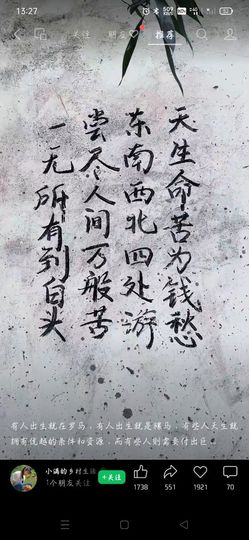 13:27
关注 朋友 推荐
天生命苦为钱愁
东南西北四处游
尝尽人间万般苦
一无所有到白头
有人出生就在罗马，有人出生就是骡马，有些人天生就
拥有优越的条件和资源，而有些人则需要付出巨...
小满的乡村生活
1个朋友关注
+关注
1738 551 1921 70